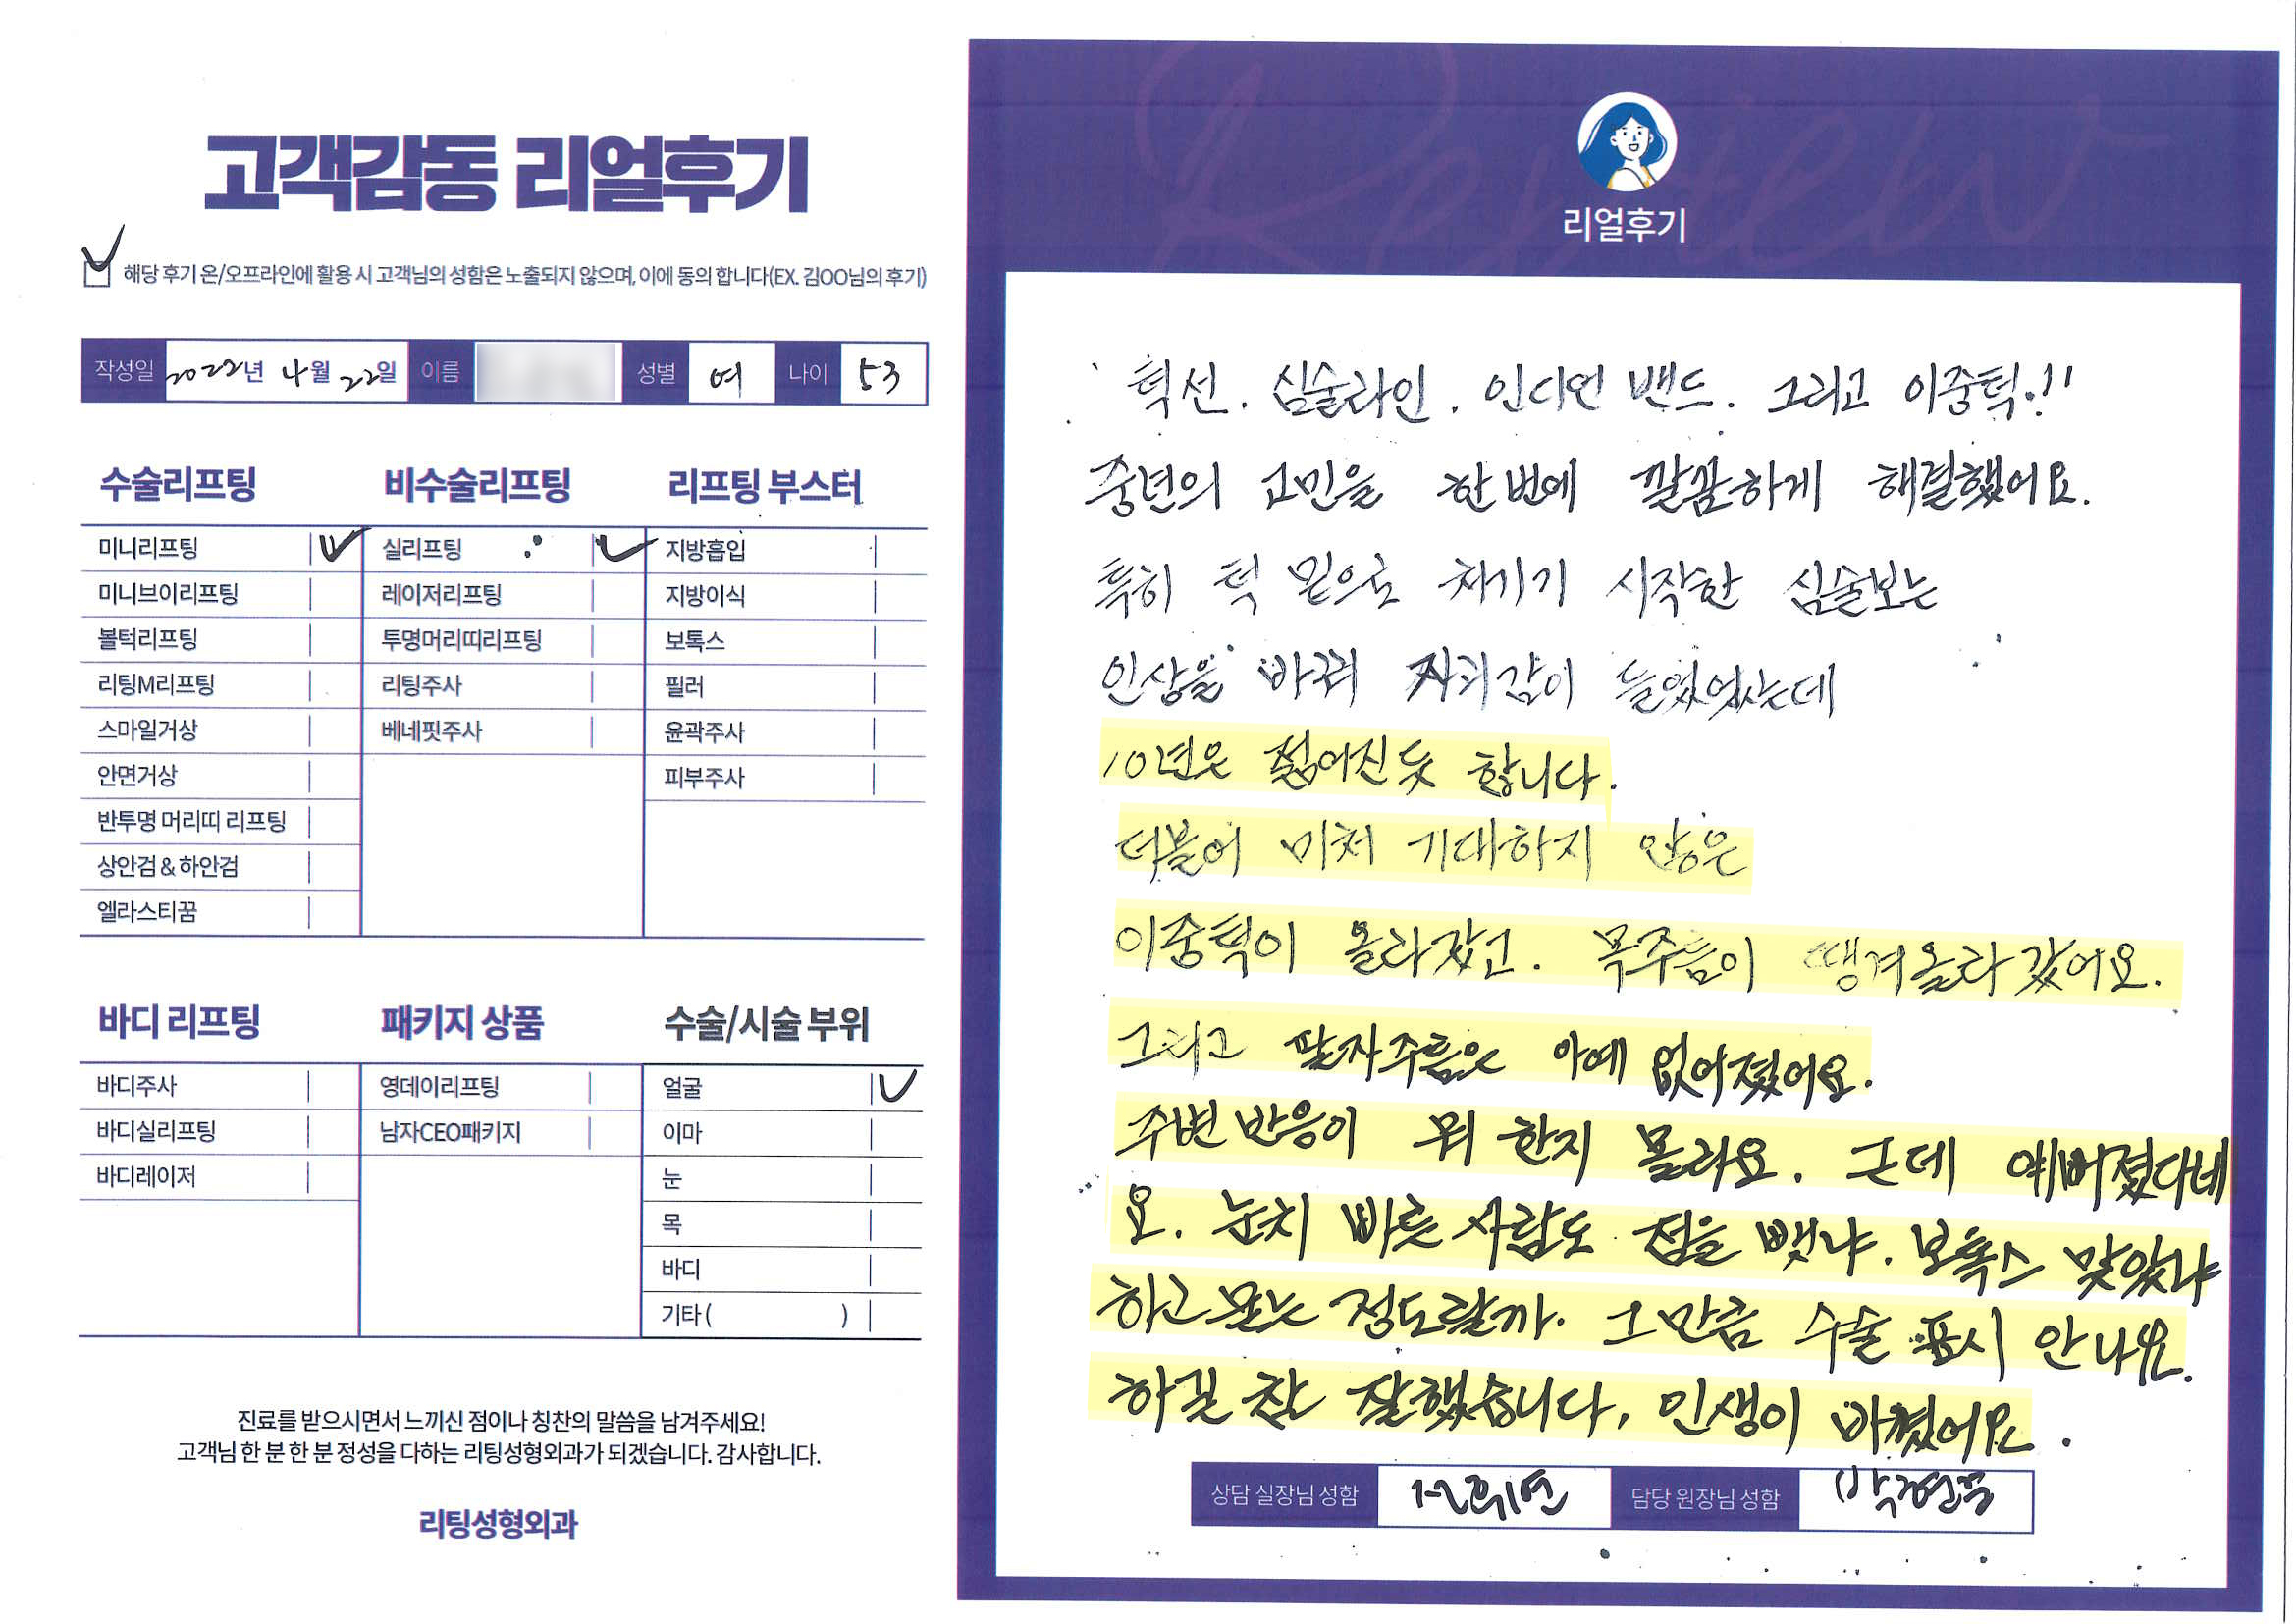 고객감동 리얼후기
해당 후기 온/오프라인에 활용 시 고객님의 성함은 노출되지 않으며, 이에 동의 합니다(EX. 김OO님의 후기)
작성일 2022년 4월 22일 이름 성별 여 나이 53
수술리프팅
미니리프팅
미니브이리프팅
볼턱리프팅
리팅M리프팅
스마일거상
안면거상
반투명 머리띠 리프팅
상안검 & 하안검
엘라스티꿈
비수술리프팅
실리프팅
레이저리프팅
투명머리띠리프팅
리팅주사
베네핏주사
리프팅 부스터
지방흡입
지방이식
보톡스
필러
윤곽주사
피부주사
바디 리프팅
바디주사
바디실리프팅
바디레이저
패키지 상품
영데이리프팅
남자CEO패키지
수술/시술 부위
얼굴
이마
눈
목
바디
기타 ( )
진료를 받으시면서 느끼신 점이나 칭찬의 말씀을 남겨주세요!
고객님 한 분 한 분 정성을 다하는 리팅성형외과가 되겠습니다. 감사합니다.
리팅성형외과
Review
리얼후기
턱선. 심술라인. 인디언 밴드. 그리고 이중턱.!!
중년의 고민을 한번에 깔끔하게 해결했어요.
특히 턱 밑으로 처지기 시작한 심술보는
인상을 바꿔 자괴감이 들었었는데
10년은 젊어진듯 합니다.
더불어 미처 기대하지 않은
이중턱이 올라갔고. 목주름이 땡겨올라갔어요.
그리고 팔자주름은 아예 없어졌어요.
주변 반응이 뭐 한지 몰라요. 근데 예뻐졌다네
요. 눈치 빠른 사람도 점을 뺏냐. 보톡스 맞았냐
하고 묻는 정도랄까. 그만큼 수술 표시 안나요.
하길 참 잘했습니다, 인생이 바꼈어요.
상담 실장님 성함 담당 원장님 성함